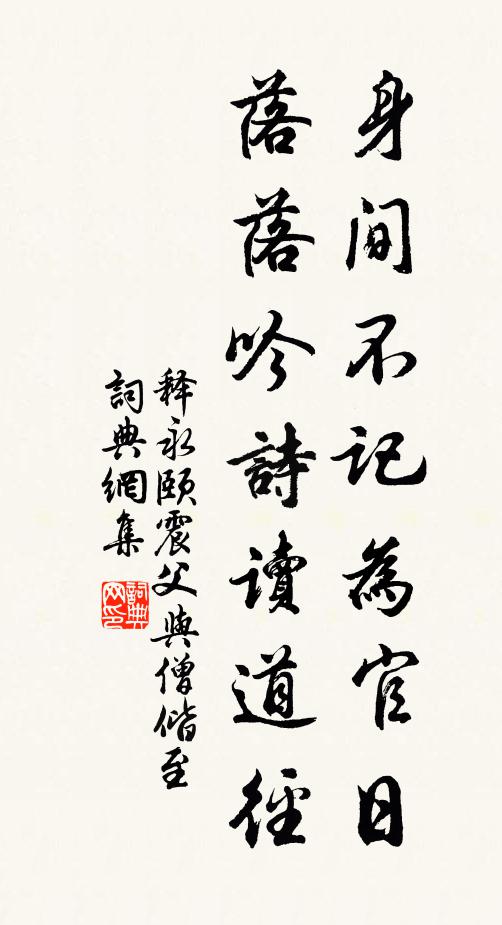 身间不记为官日
落落吟詩读道径
释永颐震父與僧偕至
詞典網集
詞典网印